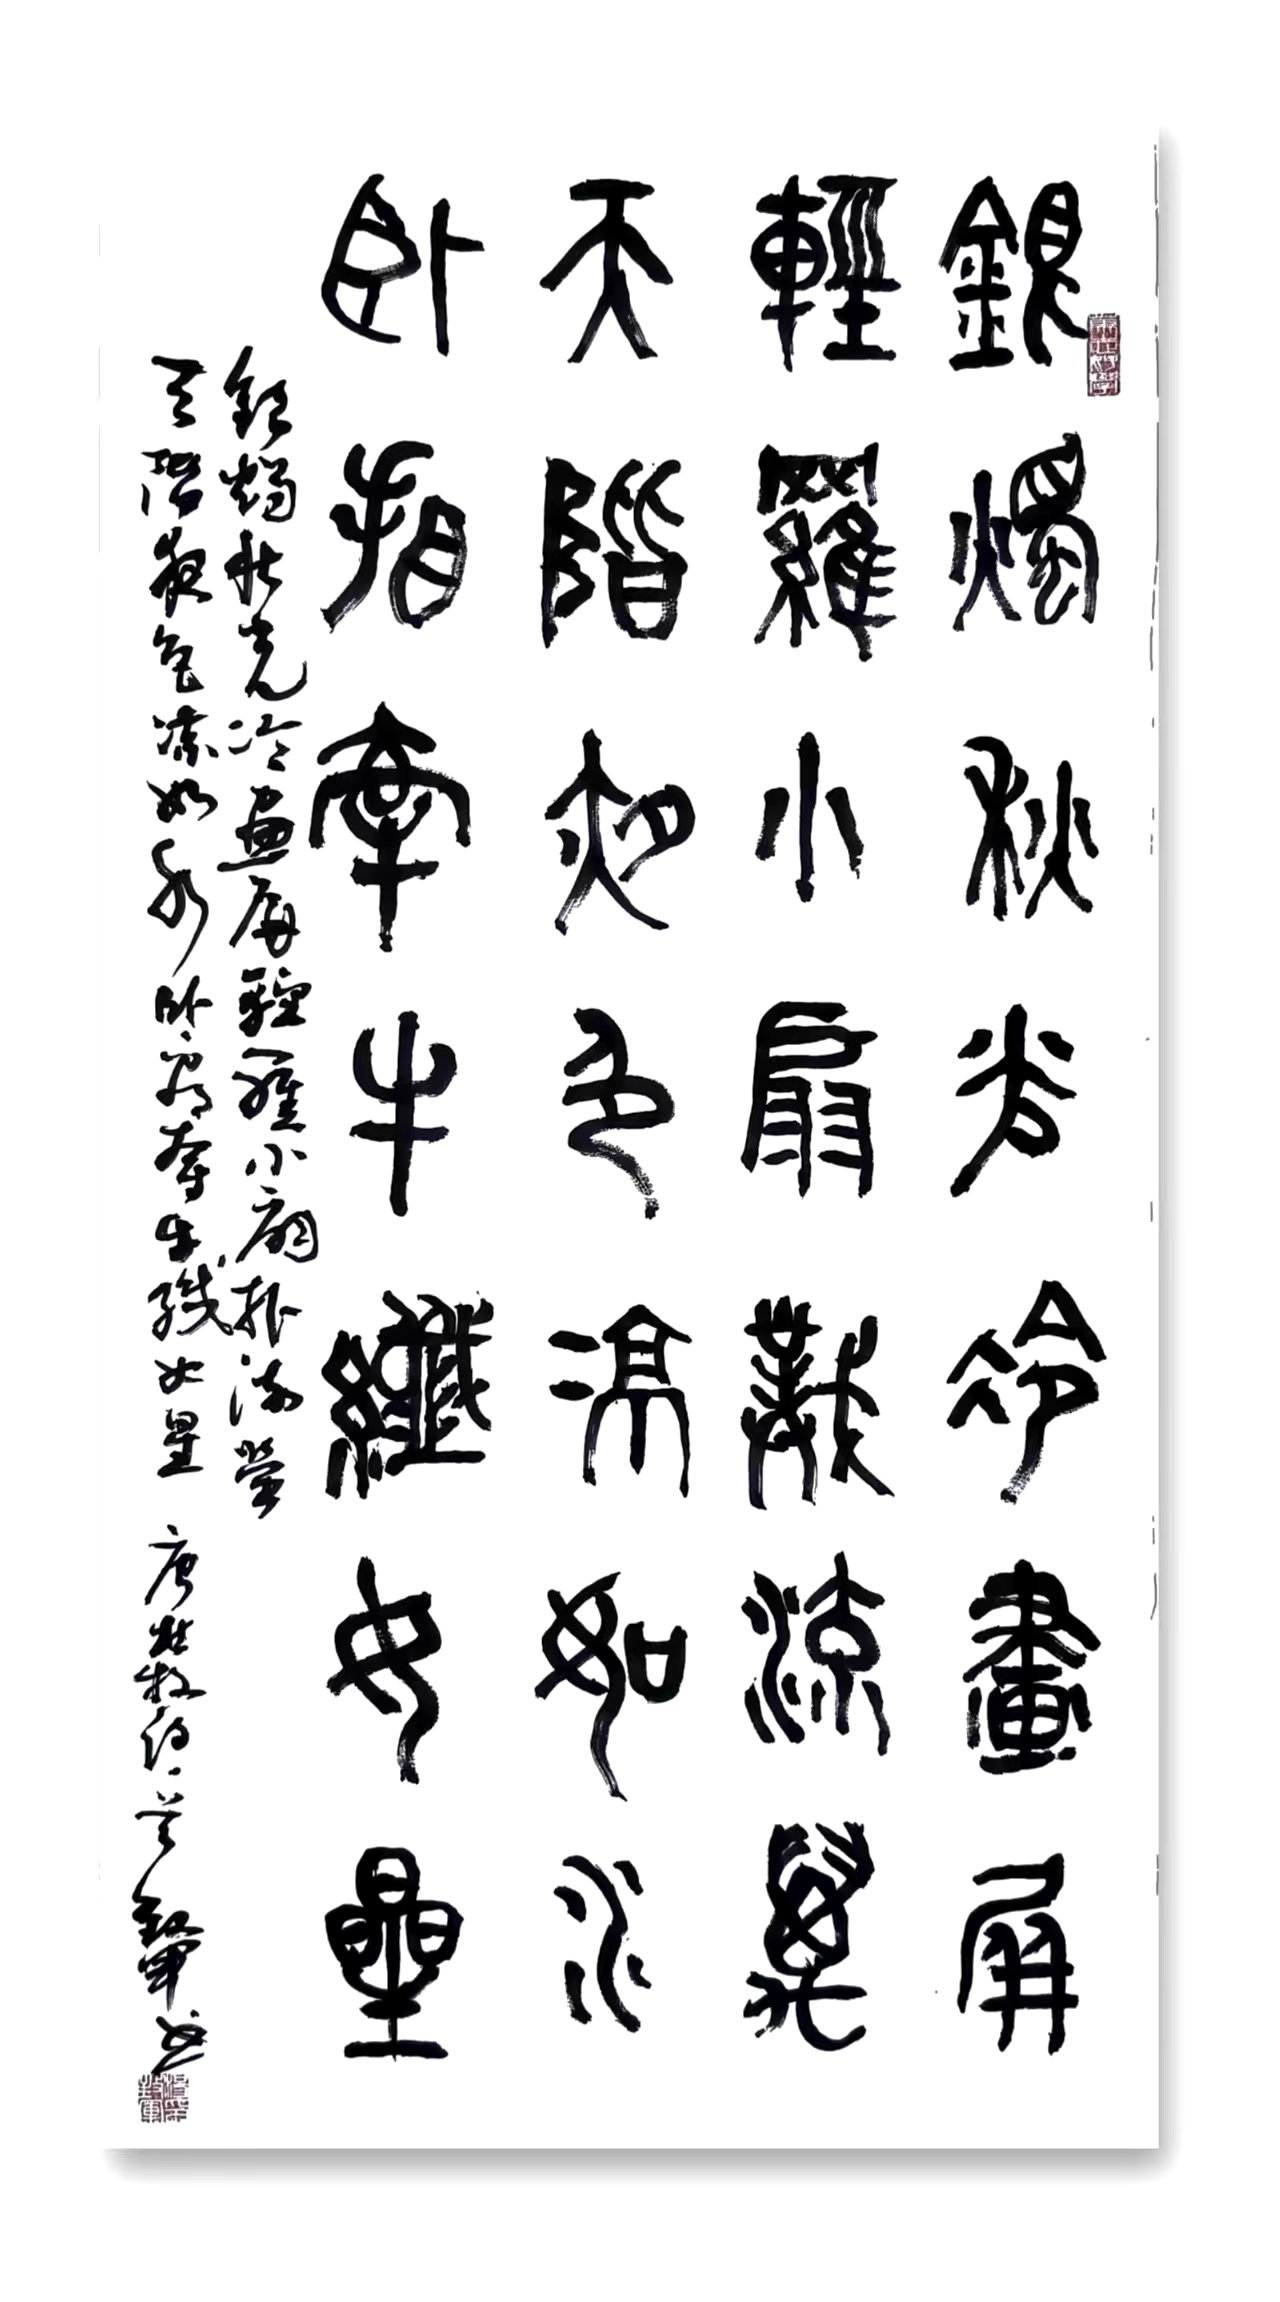 銀燭秋光冷畫屏
輕羅小扇撲流螢
天階夜色涼如水
卧看牽牛纖女星
銀燭秋光冷畫屏輕羅小扇撲流螢
天階夜色涼如水卧看牽牛織女星 唐杜牧詩一首